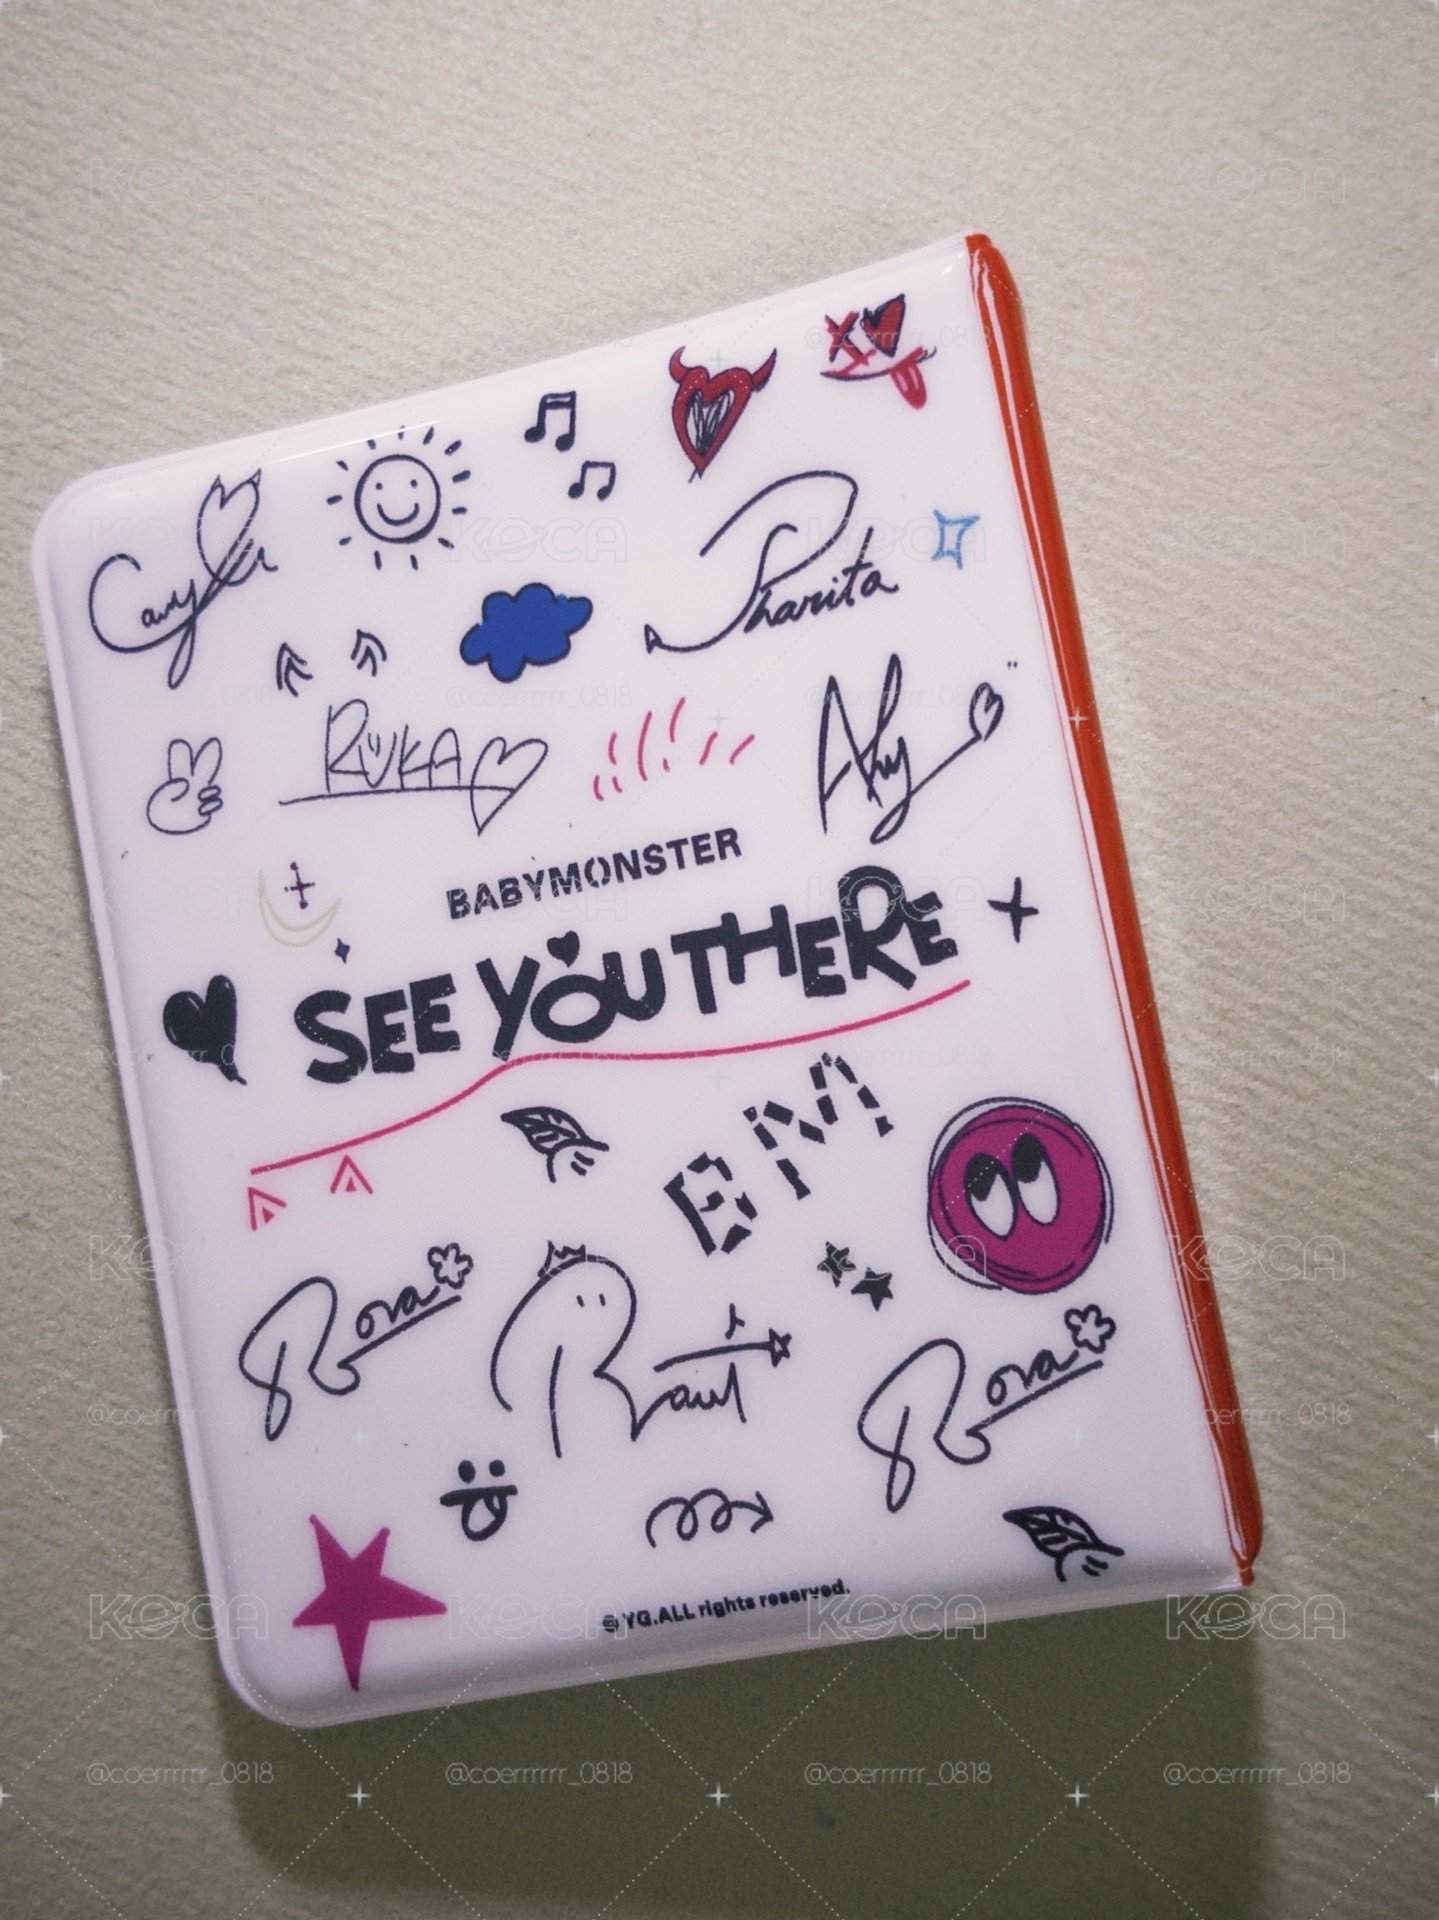 Pharita
RUKA
Ahy
BABYMONSTER
SEE YOU THERE
BM
Rora
Rami
Rora
@ YG.ALL rights reserved.
KOCA
@coerrrrrr_0818